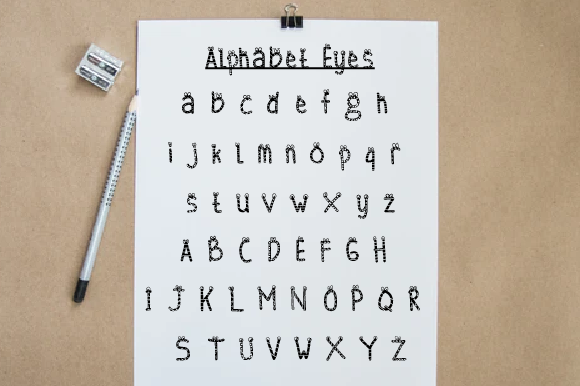 Alphabet Eyes
a b c d e f g h
i j k l m n o p q r
s t u v w x y z
A B C D E F G H
I J K L M N O P Q R
S T U V W X Y Z